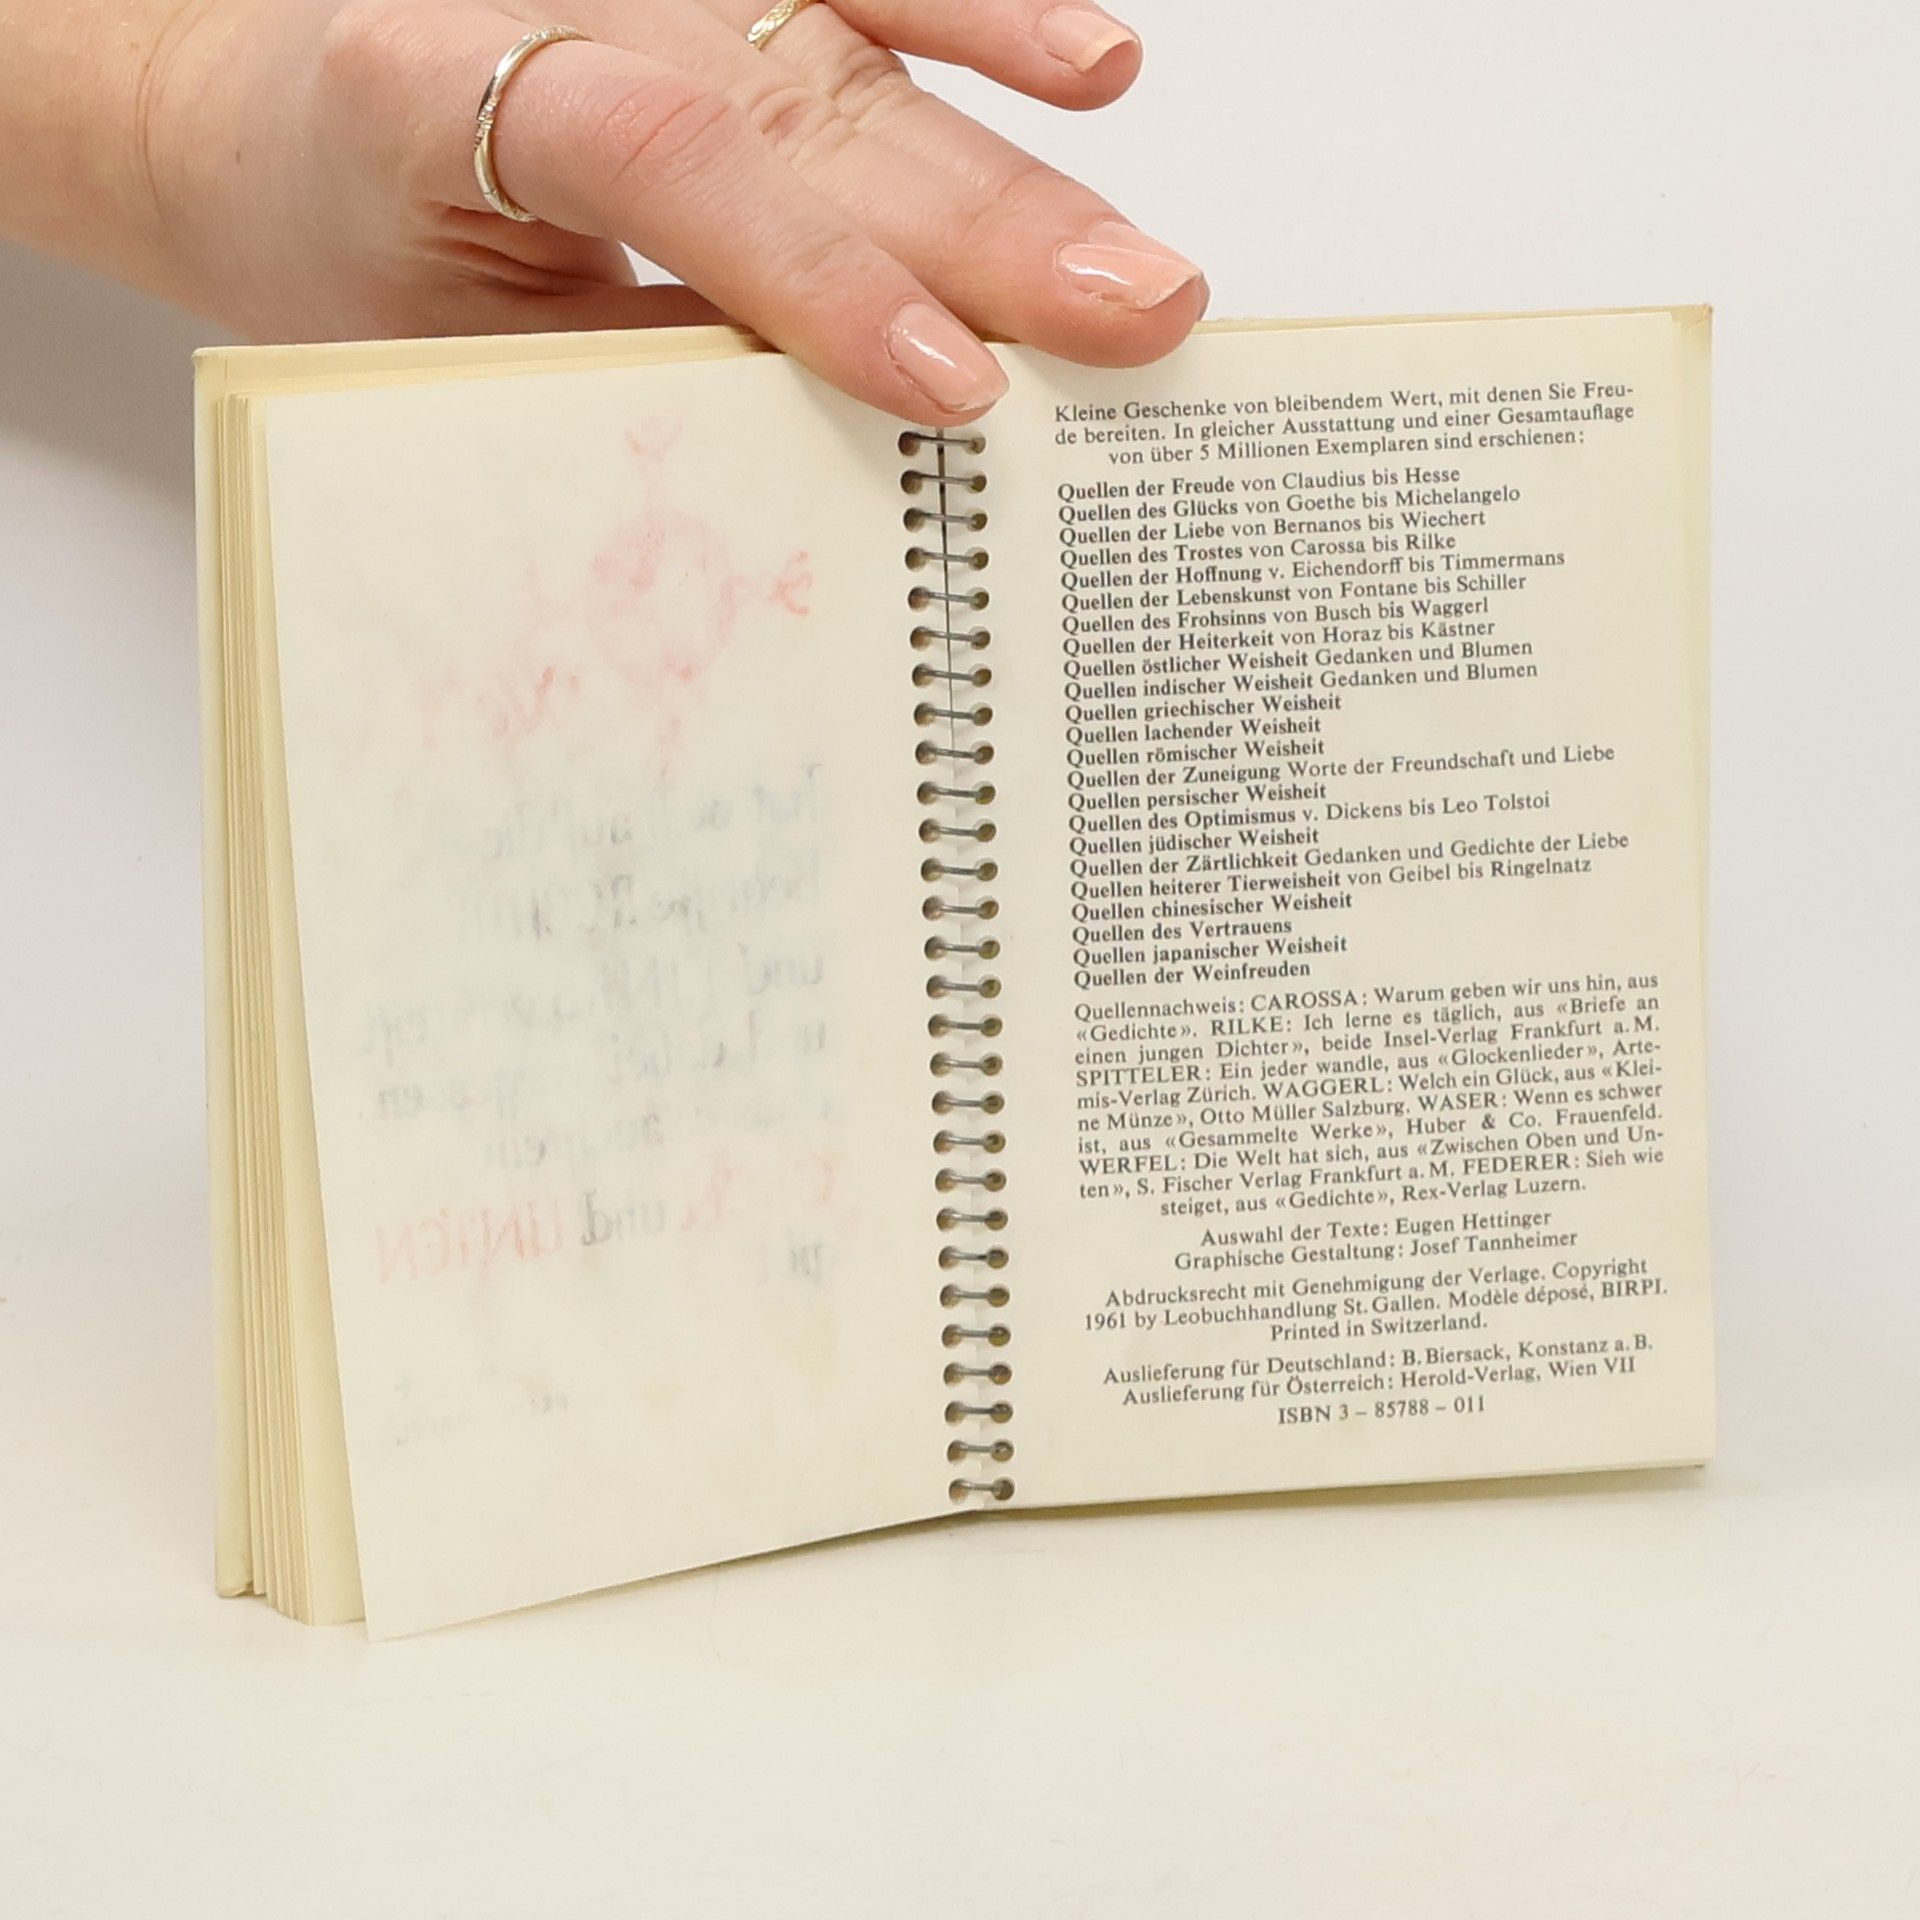 und
und
Kleine Geschenke von bleibendem Wert, mit denen Sie Freu-
de bereiten. In gleicher Ausstattung und einer Gesamtauflage
von über 5 Millionen Exemplaren sind erschienen:
Quellen der Freude von Claudius bis Hesse
Quellen des Glücks von Goethe bis Michelangelo
Quellen der Liebe von Bernanos bis Wiechert
Quellen des Trostes von Carossa bis Rilke
Quellen der Hoffnung v. Eichendorff bis Timmermans
Quellen der Lebenskunst von Fontane bis Schiller
Quellen des Frohsinns von Busch bis Waggerl
Quellen der Heiterkeit von Horaz bis Kästner
Quellen östlicher Weisheit Gedanken und Blumen
Quellen indischer Weisheit Gedanken und Blumen
Quellen griechischer Weisheit
Quellen lachender Weisheit
Quellen römischer Weisheit
Quellen der Zuneigung Worte der Freundschaft und Liebe
Quellen persischer Weisheit
Quellen des Optimismus v. Dickens bis Leo Tolstoi
Quellen jüdischer Weisheit
Quellen der Zärtlichkeit Gedanken und Gedichte der Liebe
Quellen heiterer Tierweisheit von Geibel bis Ringelnatz
Quellen chinesischer Weisheit
Quellen des Vertrauens
Quellen japanischer Weisheit
Quellen der Weinfreuden
Quellennachweis: CAROSSA: Warum geben wir uns hin, aus
«Gedichte». RILKE: Ich lerne es täglich, aus «Briefe an
einen jungen Dichter», beide Insel-Verlag Frankfurt a. M.
SPITTELER: Ein jeder wandle, aus «Glockenlieder», Arte-
mis-Verlag Zürich. WAGGERL: Welch ein Glück, aus «Klei-
ne Münze», Otto Müller Salzburg. WASER: Wenn es schwer
ist, aus «Gesammelte Werke», Huber & Co. Frauenfeld.
WERFEL: Die Welt hat sich, aus «Zwischen Oben und Un-
ten», S. Fischer Verlag Frankfurt a. M. FEDERER: Sieh wie
steiget, aus «Gedichte», Rex-Verlag Luzern.
Auswahl der Texte: Eugen Hettinger
Graphische Gestaltung: Josef Tannheimer
Abdrucksrecht mit Genehmigung der Verlage. Copyright
1961 by Leobuchhandlung St. Gallen. Modèle déposé, BIRPI.
Printed in Switzerland.
Auslieferung für Deutschland: B. Biersack, Konstanz a. B.
Auslieferung für Österreich: Herold-Verlag, Wien VII
ISBN 3 – 85788 – 011